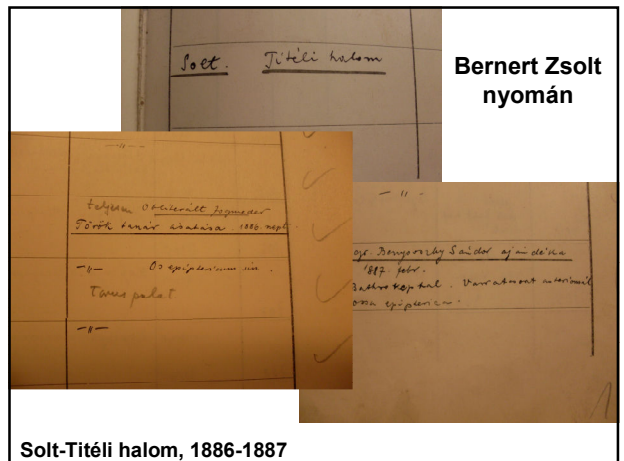 Solt. Titéli halom
Bernert Zsolt
nyomán
— 〃 —
teljesen obliterált fogmeder
Török tanár ásatása. 1886. sept.
— 〃 — Os epiptericum sin.
Torus palat
— 〃 —
— 〃 —
Sándor ajándéka
1887. febr.
Bathrokephal. Varratcsont
ossa epipterica.
Solt-Titéli halom, 1886-1887